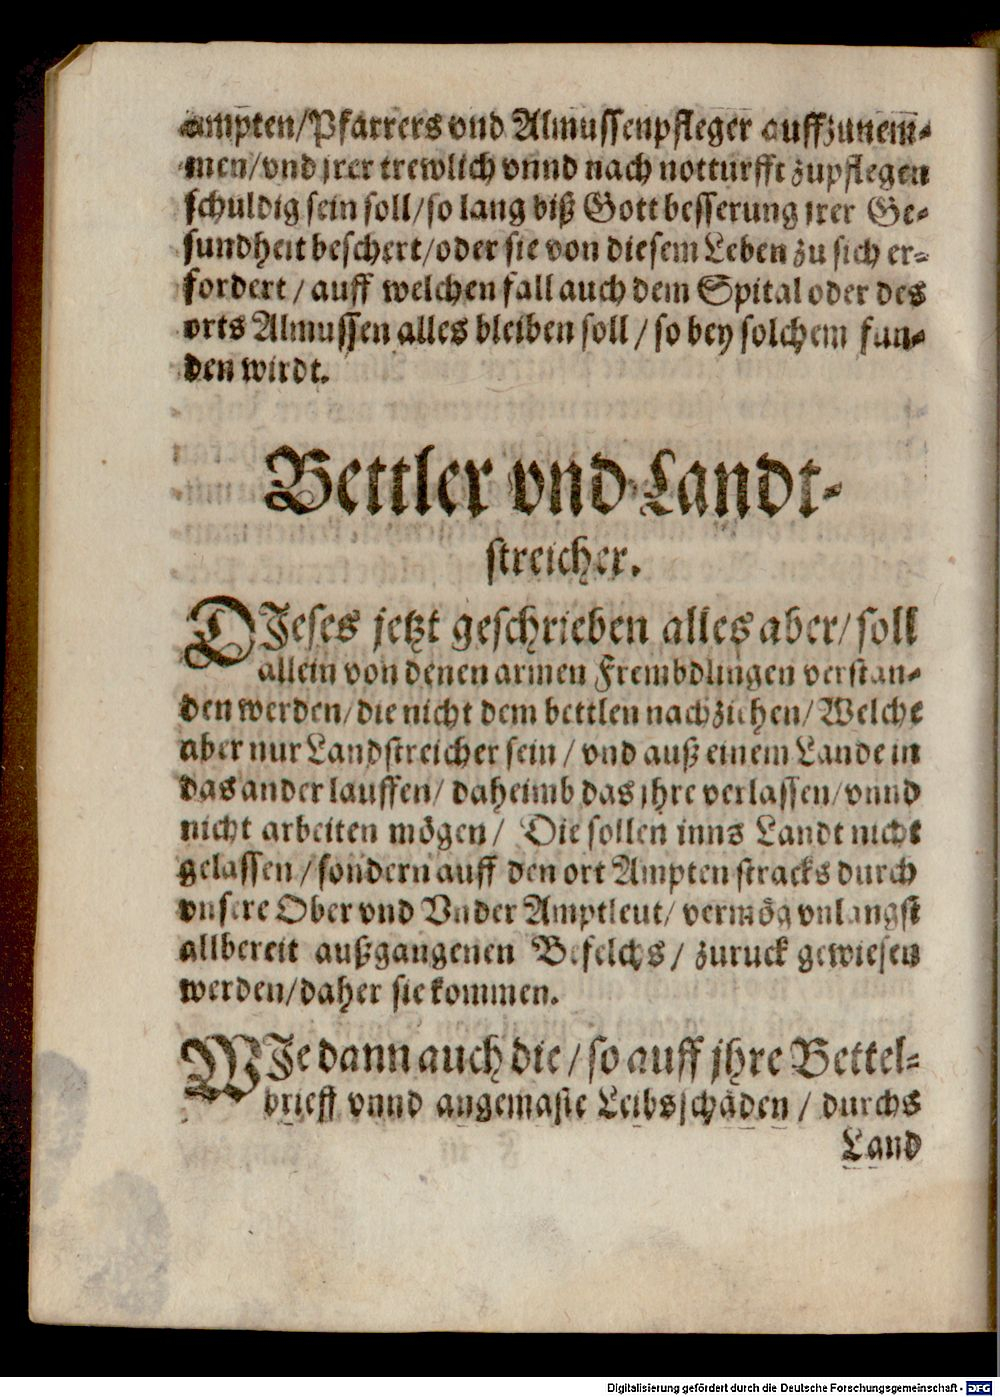 ampten/Pfarrers vnd Almussenpfleger auffzunem-
men/vnd jrer trewlich vnnd nach notturfft zupflegen
schuldig sein soll/so lang biß Gott besserung jrer Ge-
sundheit beschert/oder sie von diesem Leben zu sich er-
fordert / auff welchen fall auch dem Spital oder des
orts Almussen alles bleiben soll / so bey solchem fun-
den wirdt.
Bettler vnd Landt-
streicher.
DIeses jetzt geschrieben alles aber/ soll
allein von denen armen Frembdlingen verstan-
den werden/die nicht dem bettlen nachziehen/ Welche
aber nur Landstreicher sein / vnd auß einem Lande in
das ander lauffen/ daheimb das jhre verlassen/vnnd
nicht arbeiten mögen/ Die sollen inns Landt nicht
gelassen / sondern auff den ort Ampten stracks durch
vnsere Ober vnd Vnder Amptleut/ vermög vnlangst
allbereit außgangenen Befelchs / zuruck gewiesen
werden/daher sie kommen.
WIe dann auch die / so auff jhre Bettel-
brieff vnnd angemaste Leibsschäden / durchs
Land
Digitalisierung gefördert durch die Deutsche Forschungsgemeinschaft - DFG